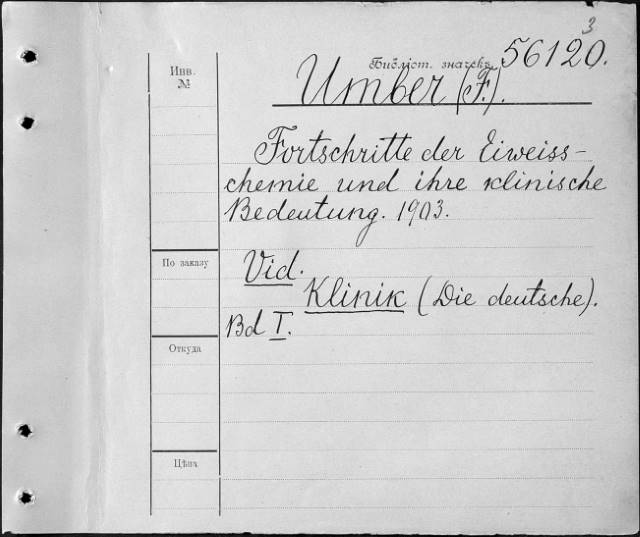 3
Инв. №
Библіот. значекъ 56120.
Umber (F.).
Fortschritte der Eiweiss-
chemie und ihre klinische
Bedeutung. 1903.
По заказу
Vid.
Klinik (Die deutsche).
Bd I.
Откуда
Цѣна